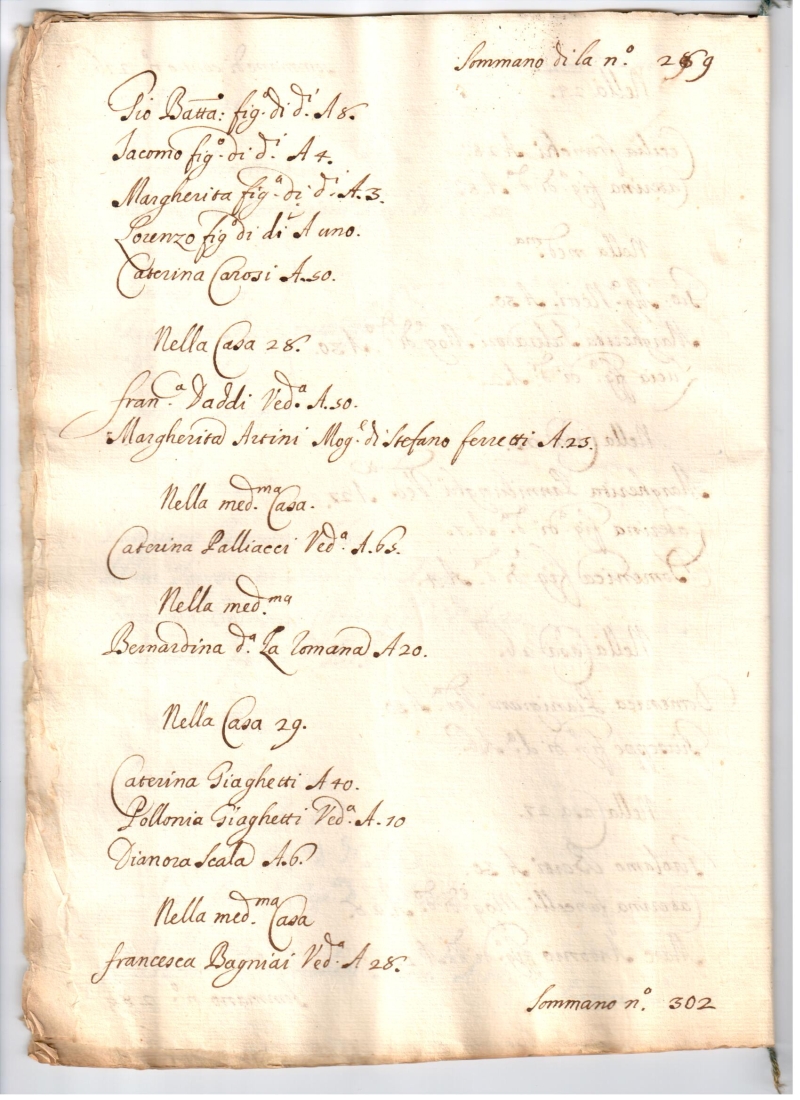 Sommano di la n.º 289
Gio Batta: fig.º di d.i A 8.
Iacomo fig.º di d.i A 4.
Margherita fig.a di d.i A. 3.
Lorenzo fig.º di di A uno.
Caterina Carosi A. 50.
Nella Casa 28.
fran.ca Daddi Ved.a A. 50.
Margherita Artini Mog.e di Stefano ferretti A. 25.
Nella med.ma Casa.
Caterina Palliacci Ved.a A. 65.
Nella med.ma
Bernardina d.a La Romana A 20.
Nella Casa 29.
Caterina Giaghetti A 40.
Pollonia Giaghetti Ved.a A. 10
Dianora Scala A. 6.
Nella med.ma Casa
francesca Bagniai Ved.a A 28.
Sommano n.º 302